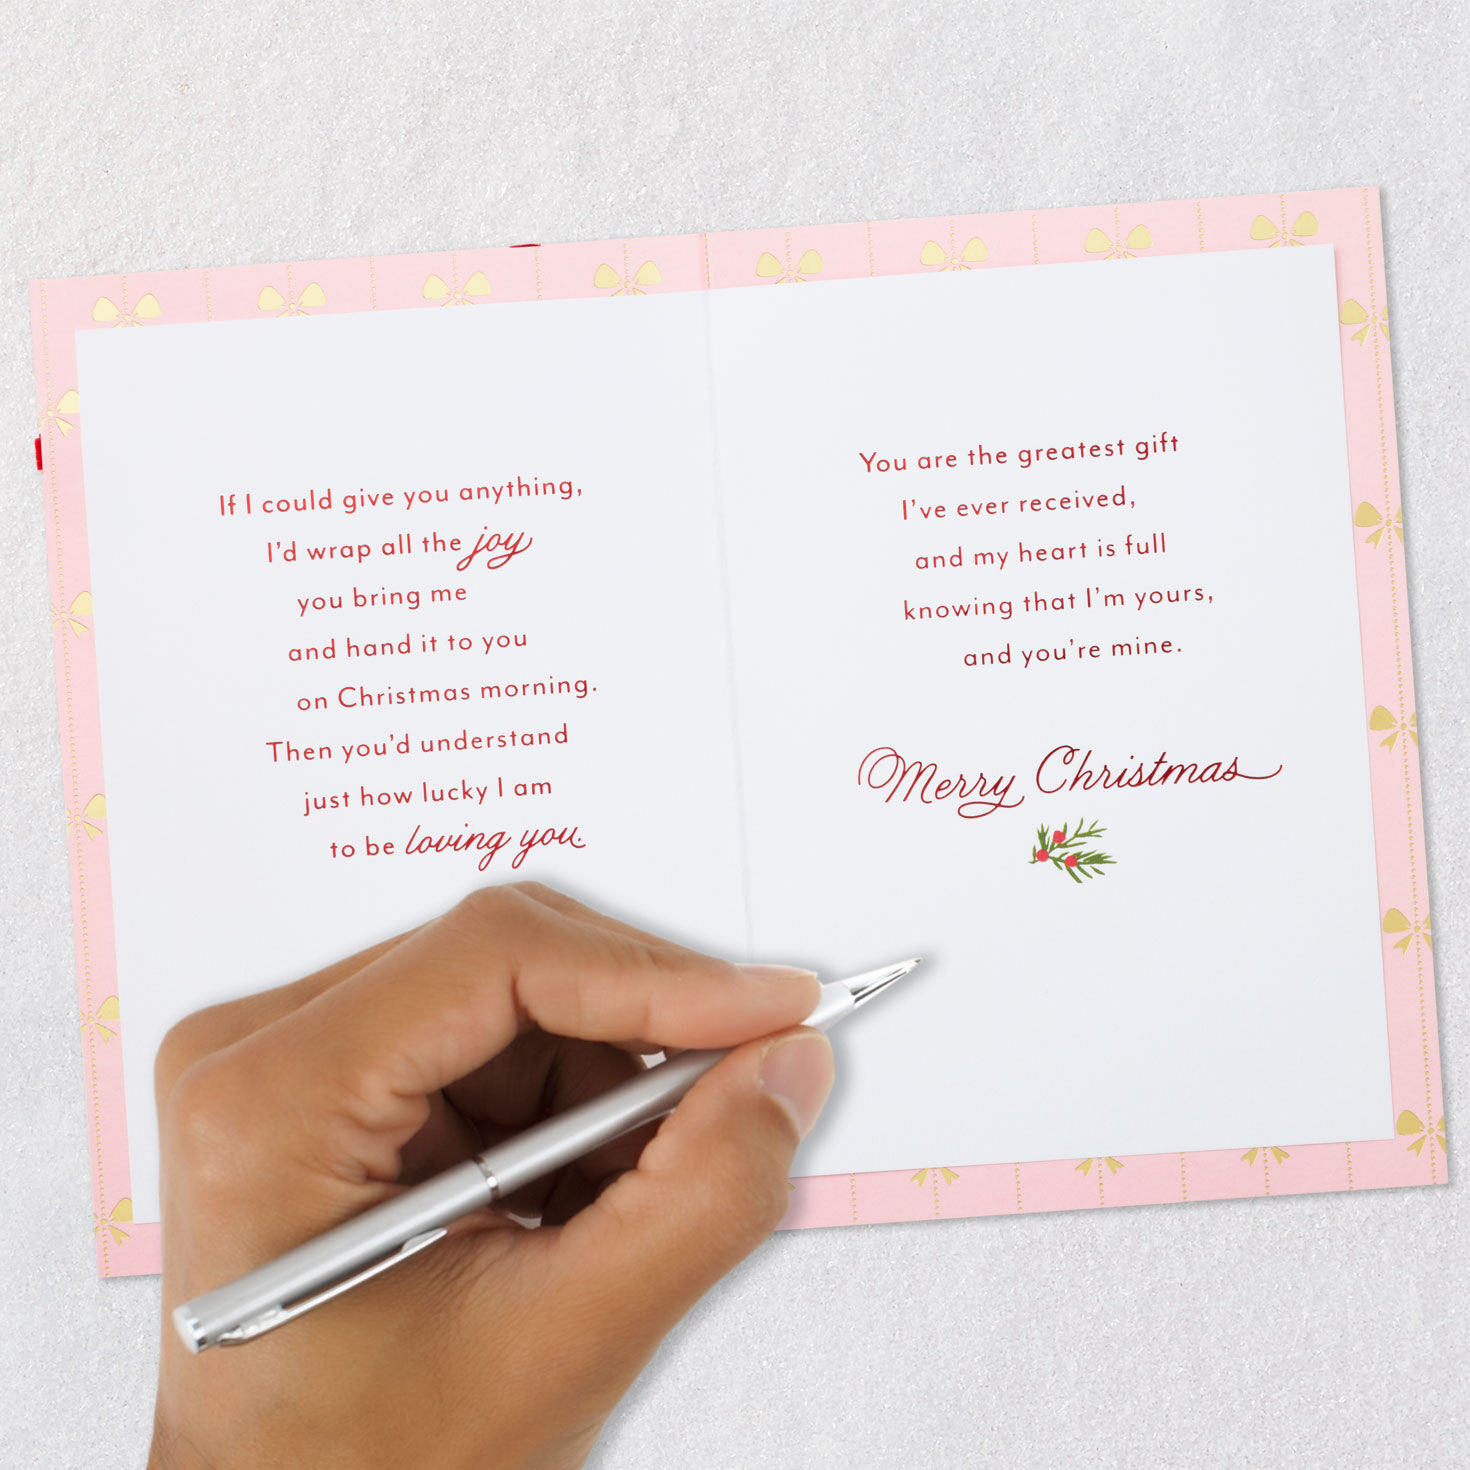 If I could give you anything,
I'd wrap all the joy
you bring me
and hand it to you
on Christmas morning.
Then you'd understand
just how lucky I am
to be loving you.
You are the greatest gift
I've ever received,
and my heart is full
knowing that I'm yours,
and you're mine.
Merry Christmas